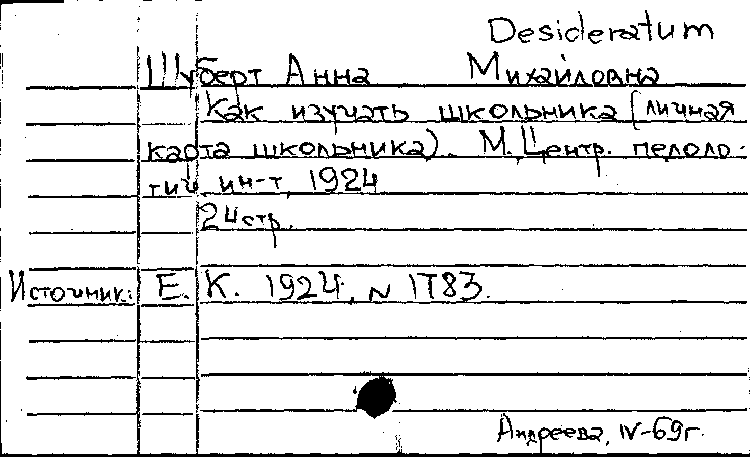 Desideratum
Шуберт Анна Михайловна
Как изучать школьника (личная
карта школьника). М., Центр. педоло-
гич. ин-т, 1924
24 стр.
Источник: Е. К. 1924, N 1783.
Андреева, IV-69г.